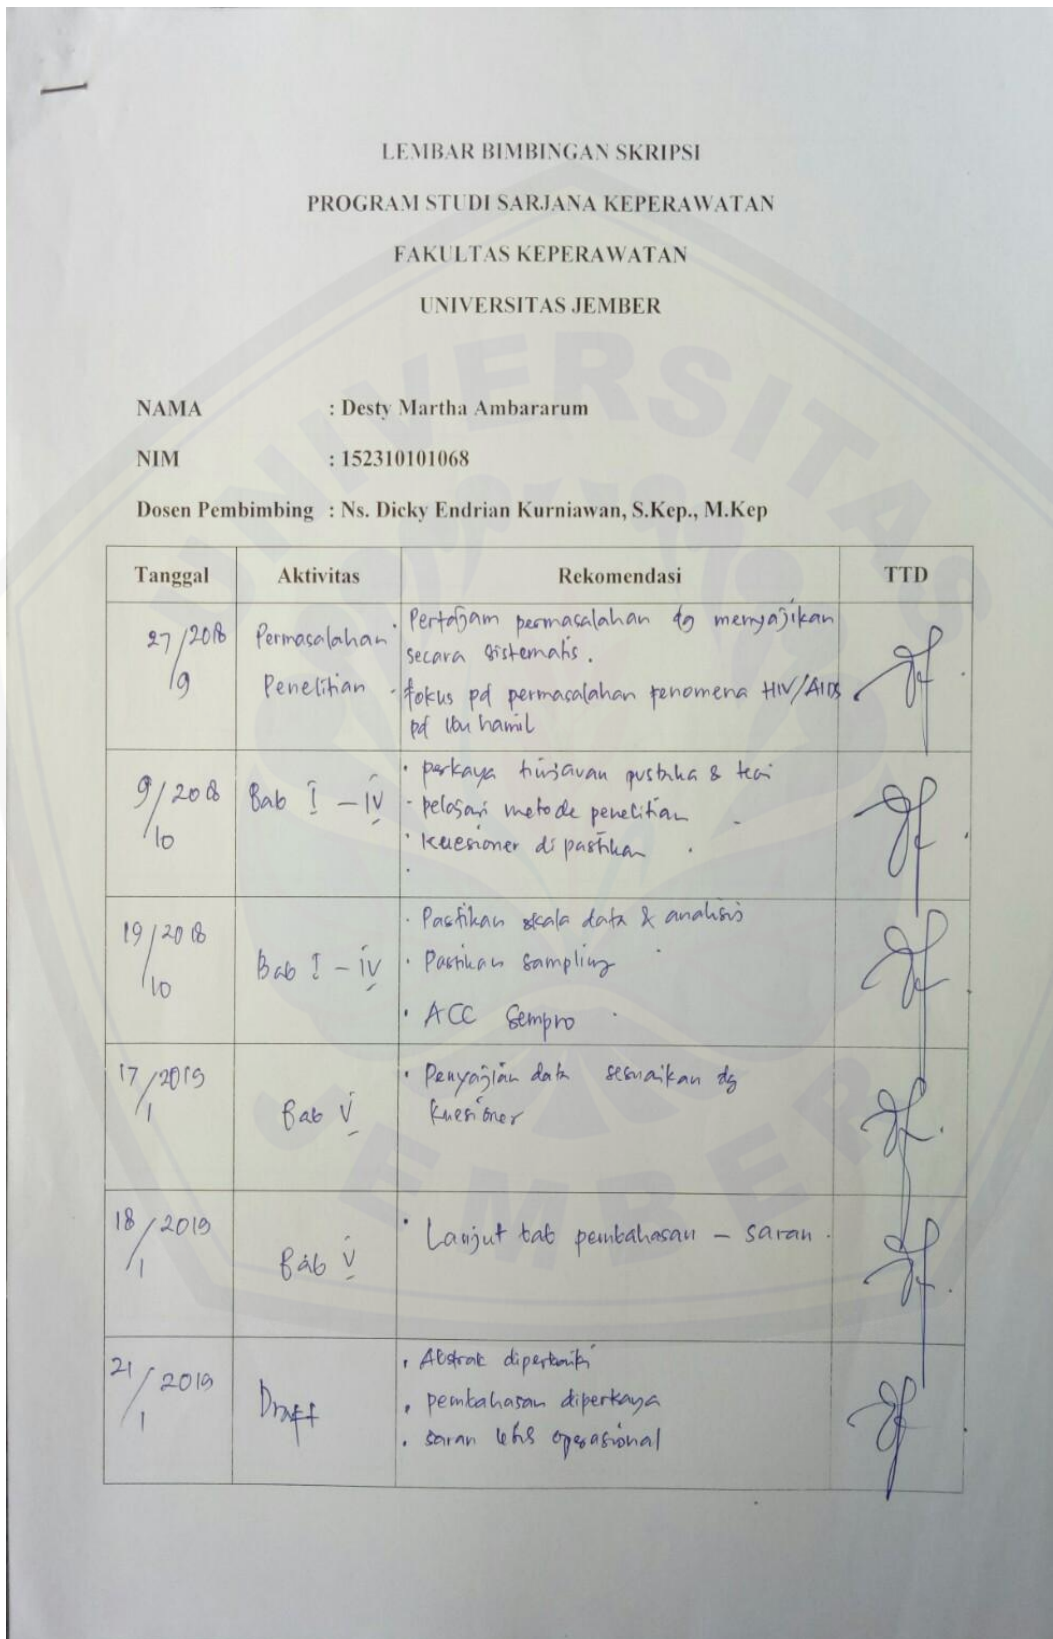 LEMBAR BIMBINGAN SKRIPSI
PROGRAM STUDI SARJANA KEPERAWATAN
FAKULTAS KEPERAWATAN
UNIVERSITAS JEMBER
NAMA : Desty Martha Ambararum
NIM : 152310101068
Dosen Pembimbing : Ns. Dicky Endrian Kurniawan, S.Kep., M.Kep
Tanggal Aktivitas Rekomendasi TTD
27/9 2018 Permasalahan Penelitian
· Pertajam permasalahan dg menyajikan
secara sistematis.
· fokus pd permasalahan fenomena HIV/AIDS
pd ibu hamil
9/10 2018 Bab I - IV
· perkaya tinjauan pustaka & teori
- pelajari metode penelitian
· kuesioner di pastikan
19/10 2018 Bab I - IV
· Pastikan skala data & analisis
· Pastikan Sampling
· ACC Sempro
17/1 2019 Bab V
· Penyajian data sesuaikan dg
kuesioner
18/1 2019 Bab V
· Lanjut bab pembahasan - saran.
21/1 2019 Draft
· Abstrak diperbaiki
· pembahasan diperkaya
· saran lebih operasional
UNIVERSITAS JEMBER